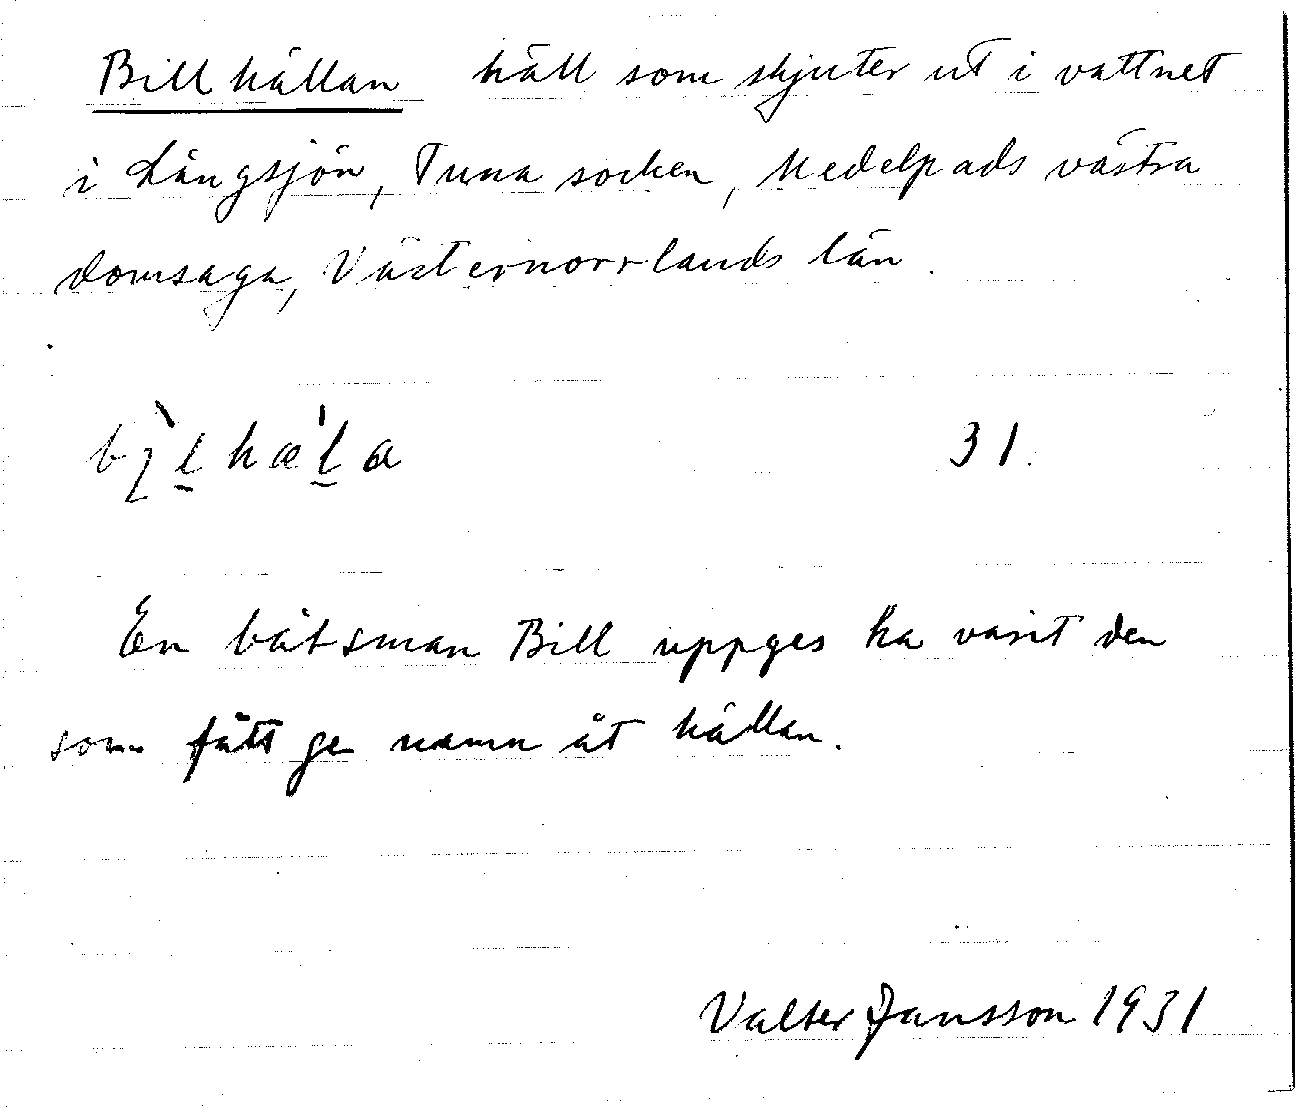 Billhällan häll som skjuter ut i vattnet
i Långsjön, Tuna socken, Medelpads västra
domsaga, Västernorrlands län.
31.
En båtsman Bill uppges ha varit den
som fått ge namn åt hällan.
Valter Jansson 1931